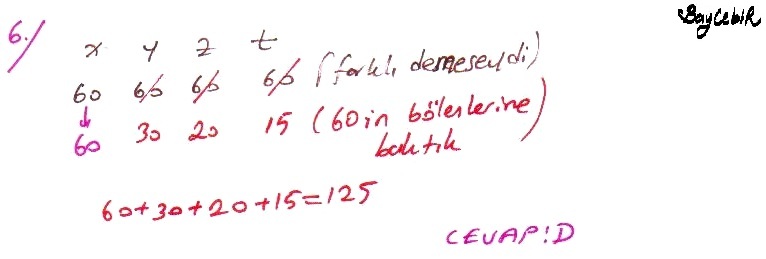 BayCebiR
6./
x y z t
60 60 60 60 (farklı demeseydi)
↓
60 30 20 15 (60 in bölenlerine baktık
60+30+20+15=125
CEVAP:D